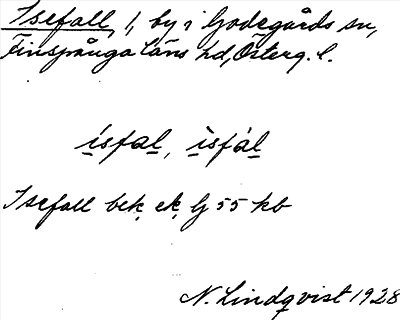 Isefall, 1, by i Godegårds sn,
Finspånga läns hd, Österg. l.
ísfal, ìsfál
Isefall bek. ek. bl 55 kb
N. Lindqvist 1928